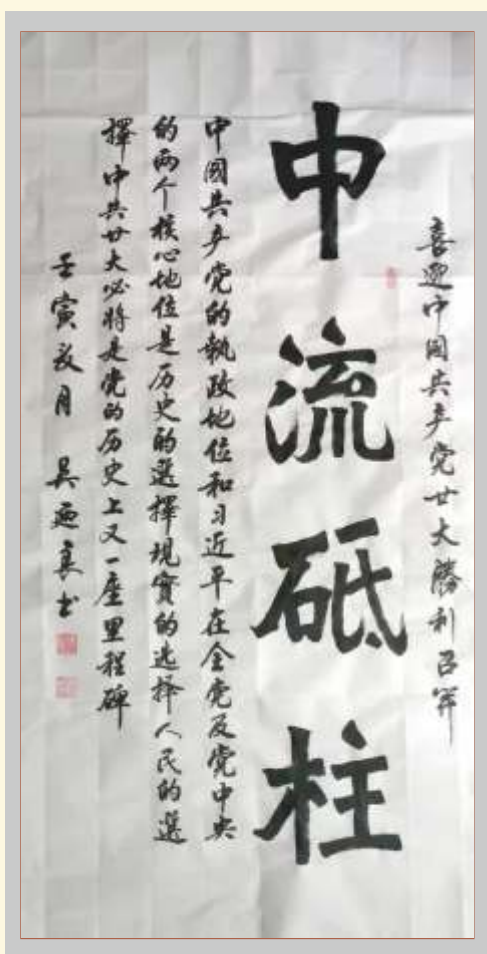 喜迎中國共产党廿大勝利召開
中流砥柱
中國共产党的執政地位和习近平在全党及党中央
的两个核心地位是历史的選擇現實的选择人民的選
擇中共廿大必將是党的历史上又一座里程碑
壬寅 月 吴 良书